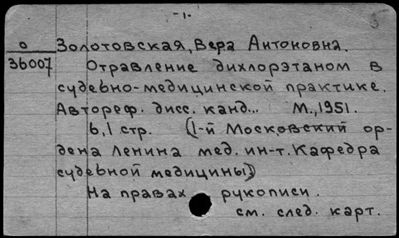 -1-
5
О
36007
Золотовская, Вера Антоновна.
Отравление дихлорэтаном в
судебно-медицинской практике.
Автореф. дисс. канд... М., 1951.
6,1 стр. (1-й Московский ор-
дена Ленина мед. ин-т. Кафедра
судебной медицины)
На правах рукописи.
см. след. карт.